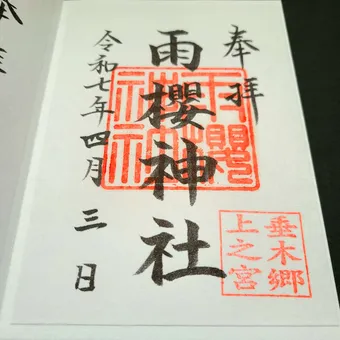 奉拝
雨櫻神社
令和七年四月三日
垂木郷
上之宮